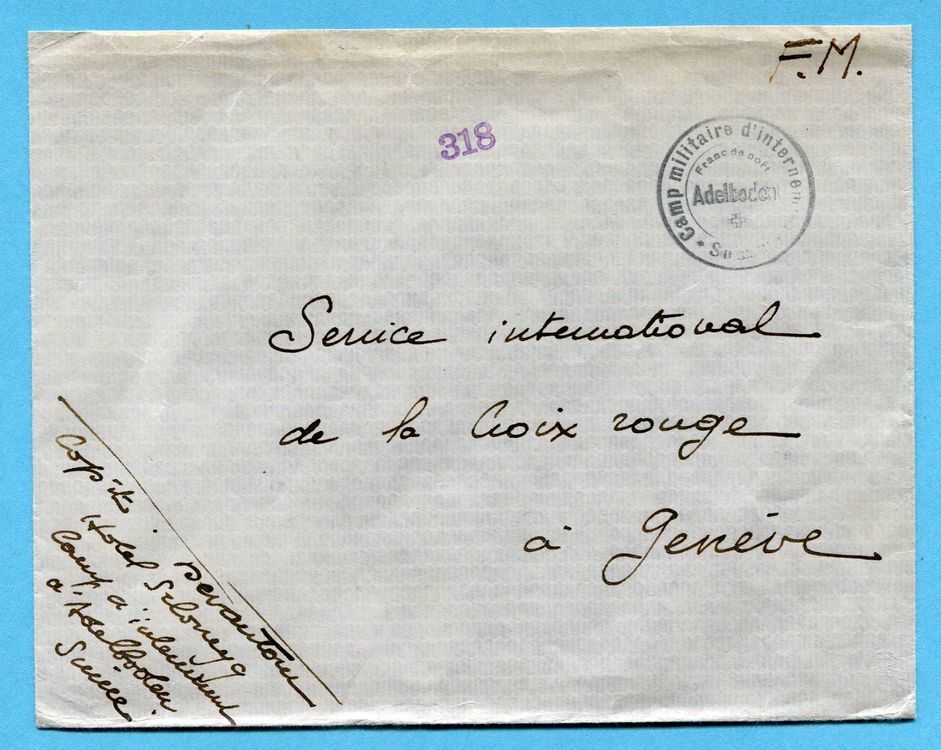 F.M.
318
Camp militaire d'internem
Franc de port
Adelboden
Service international
de la Croix rouge
à Genève
Hotel
Camp d'internement
d'Adelboden
Suisse